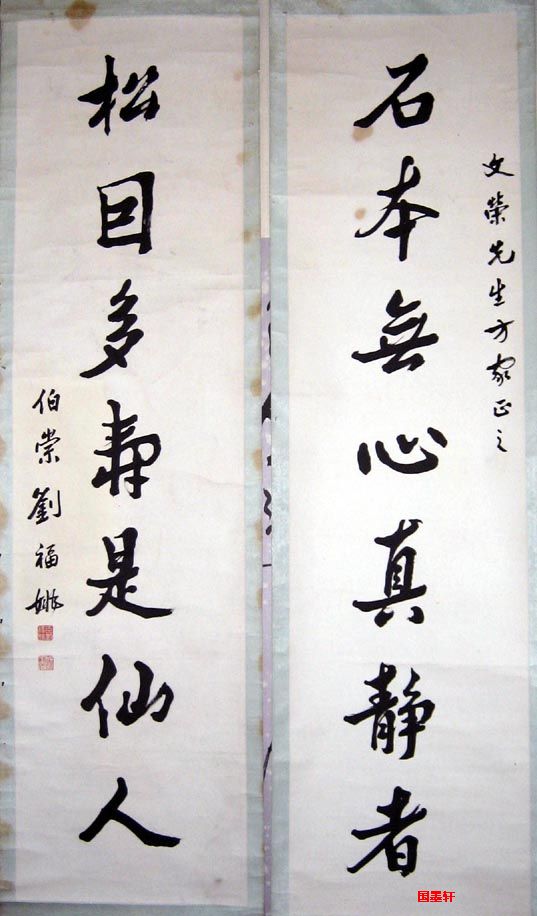 文榮先生方家正之
石本無心真静者
松囙多壽是仙人
伯崇劉福姚
国墨轩